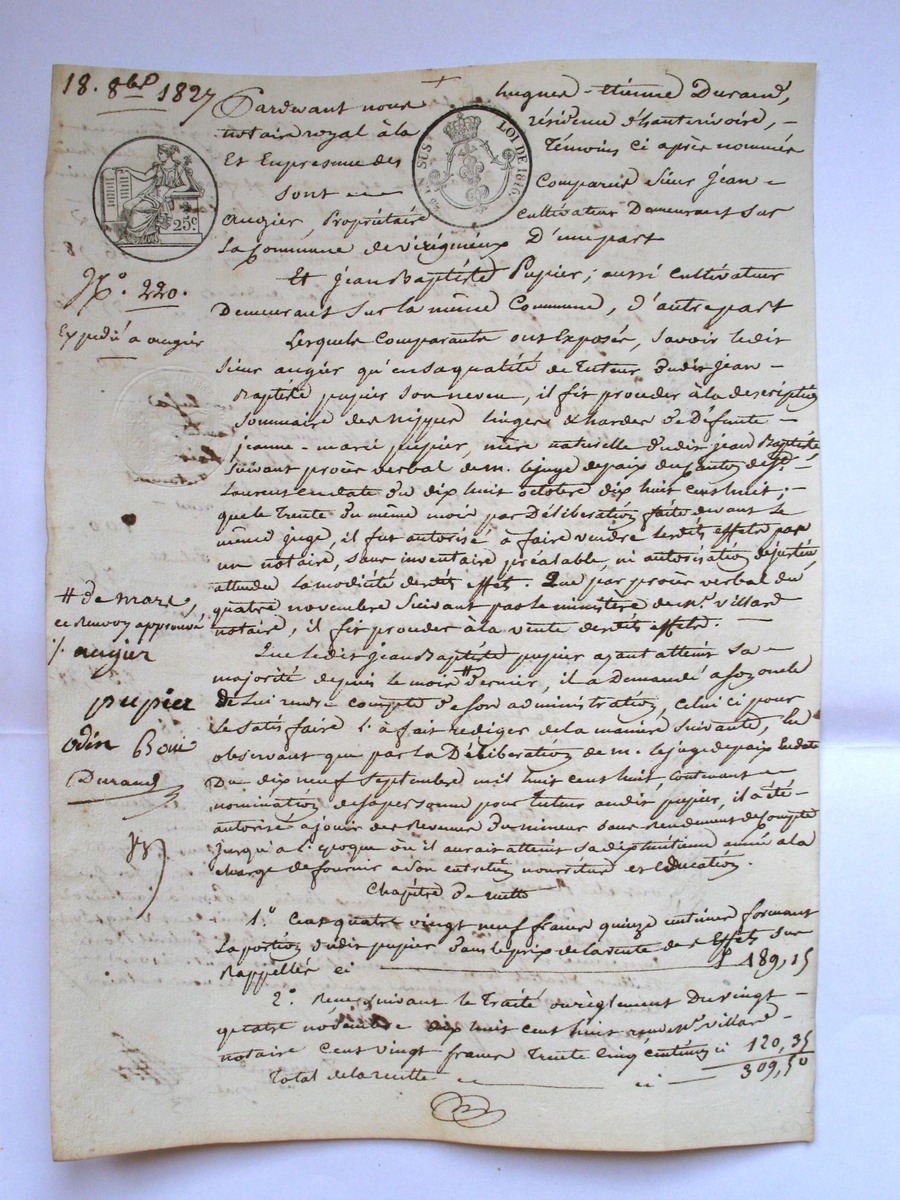 18. 8bre 1827
Pardevant nous hugues - étienne Durand,
notaire royal à la résidence d'hauterivoire, -
Et En presence des Témoins ci après nommés
Sont Comparus Sieur Jean -
augier, Propriétaire Cultivateur Demeurant Sur
La Commune de virigneux D'une part
SUS
LOI DE 1816
25c
N.o 220.
Expédié a augier
Et Jean Baptiste Pupier, aussi Cultivateur
Demeurant Sur la même Commune, d'autre part
Lesquels Comparants ont Exposés, Savoir ledit
Sieur augier qu'en sa qualité de Tuteur dudit Jean -
Baptiste pupier son neveu, il fit procéder à la description
Sommaire des nippes linges & hardes de Défunte -
jeanne - marie pupier, mère naturelle dudit jean Baptiste
Suivant procès verbal de m. le juge de paix du canton de St -
Laurent en date du dix huit octobre dix huit cent huit ;
que le Trente du même mois par Délibération faite devant le
même juge, il fut autorisé à faire vendre lesdits effets par
un notaire, sans inventaire préalable, ni autorisation de justice
attendu la modicité desdits effets. Que par procès verbal du
quatre novembre Suivant par le ministère de me. villard
notaire, il fit procéder à la vente desdits effets. -
Que ledit Jean Baptiste pupier ayant atteint sa -
majorité depuis le mois # dernier, il a Demandé a son oncle
de Lui rendre compte de son administration, celui ci pour
le satisfaire l'a fait rediger de la manière suivante, lui
observant que par la Délibération de m. le juge de paix en date
Du dix neuf Septembre mil huit cent huit, contenant -
nomination de sa personne pour tuteur audit pupier, il a été -
autorisé a jouir des Revenus du mineur sans Rendement de Compte
jusqu'a l'époque où il aurait atteint sa dix huitième année à la
charge de fournir a son entretien nourriture et éducation.
# de mars,
ce Renvoy approuvé
augier
pupier
odin Boni
Durand
Chapitre de recette
1.o Cent quatre vingt neuf francs quinze centimes formant
La portion dudit pupier dans le prix de la vente des Effets sus
Rappellés ci f 189,15
2.o Reçu suivant le Traité ou règlement Du vingt -
quatre novembre dix huit cent huit me villard -
notaire Cent vingt francs Trente Cinq centimes ci 120,35
Total de la recette ci 309,50